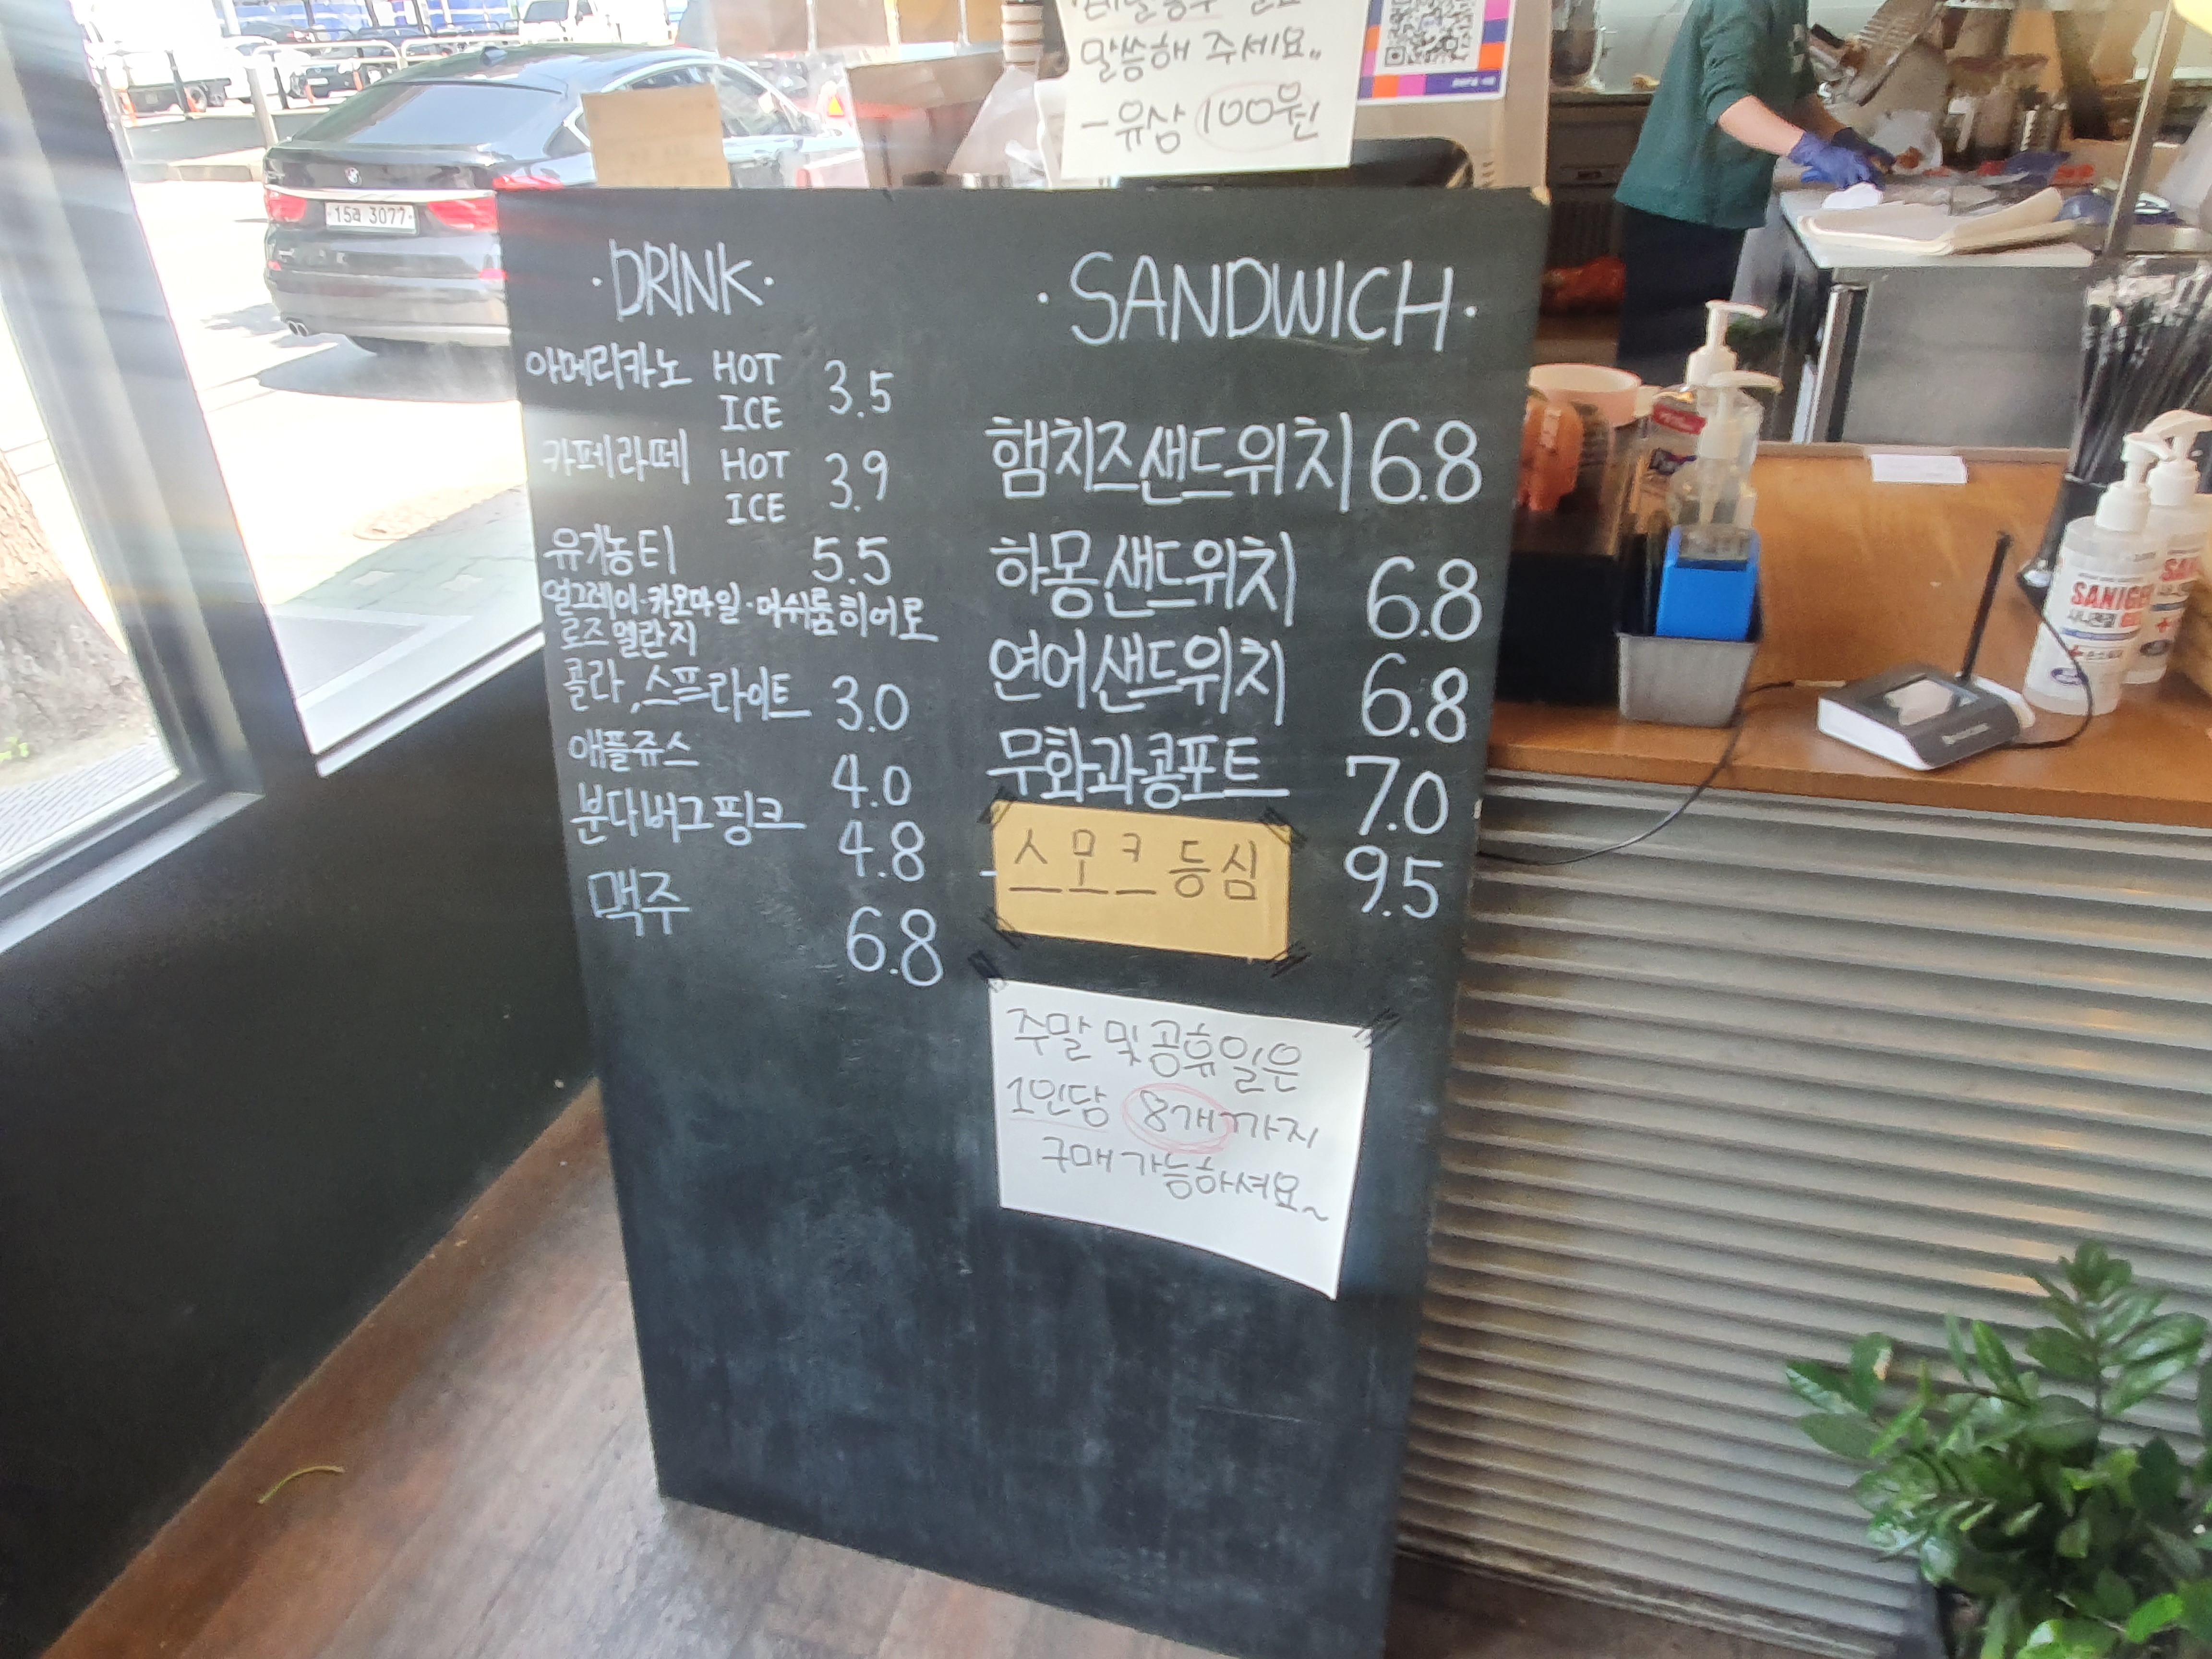 말씀해 주세요..
-유상 100원
15라 3077
·DRINK·
아메리카노 HOT 3.5
ICE
카페라떼 HOT 3.9
ICE
유기농티 5.5
얼그레이·카모마일·머쉬룸히어로
로즈멜란지
콜라,스프라이트 3.0
애플쥬스 4.0
분다버그핑크 4.8
맥주 6.8
·SANDWICH·
햄치즈샌드위치 6.8
하몽샌드위치 6.8
연어샌드위치 6.8
무화과콩포트 7.0
-스모크등심 9.5
주말 및 공휴일은
1인당 8개까지
구매가능하셔요~
SANIGEL